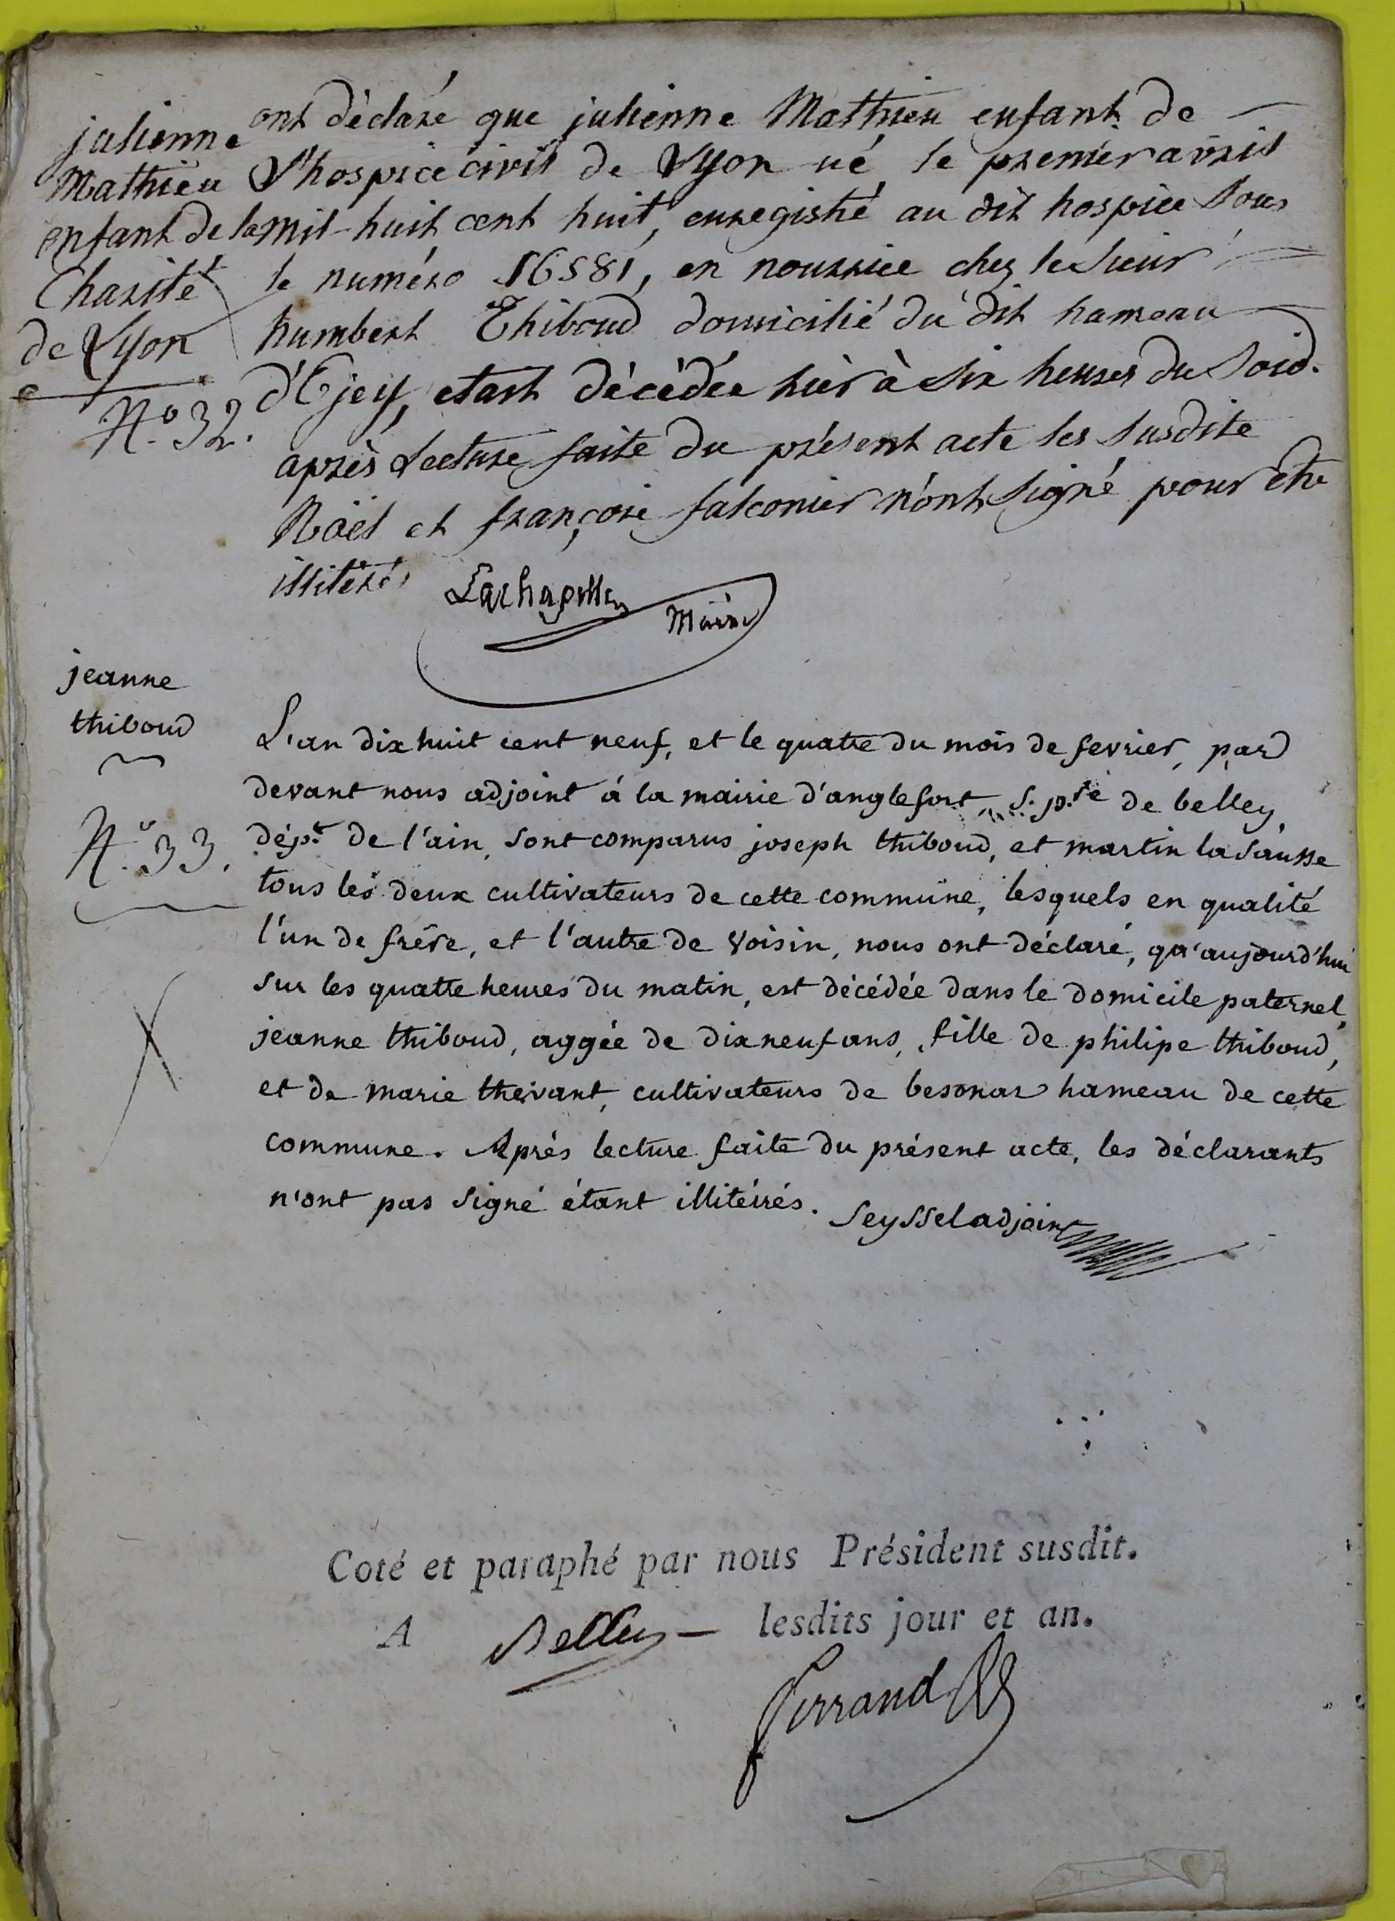 julienne
Mathieu
enfant de la
Charité
de Lyon
N.º 32.
ont déclaré que julienne Mathieu enfant de
L'hospice civil de Lyon né le premier avril
mil huit cent huit, enregistré au dit hospice sous
le numéro 16581, en nourrice chez le Sieur
humbert Thiboud domicilié du dit hameau
d'Ejey, etant décédée hier à six heures du Soir.
après Lecture faite du présent acte les susdits
Noël et françois falconier n'ont signé pour être
illiteré
Lachapelle Maire
jeanne
thiboud
N.º 33.
L'an dix huit cent neuf, et le quatre du mois de fevrier, par
devant nous adjoint á la mairie d'anglefort, S. p.re de belley
dép.t de l'ain, sont comparus joseph thiboud, et martin la sausse
tous les deux cultivateurs de cette commune, lesquels en qualité
l'un de frère, et l'autre de voisin, nous ont déclaré, qu'aujourd'hui
sur les quatte heures du matin, est décédée dans le domicile paternel,
jeanne thiboud, aggée de dix neuf ans, fille de philipe thiboud,
et de marie thevant, cultivateurs de besonar hameau de cette
commune. Après lecture faite du présent acte, les déclarants
n'ont pas signé étant illitéirés. Seyssel adjoint
Coté et paraphé par nous Président susdit.
A Belley lesdits jour et an.
ferrand